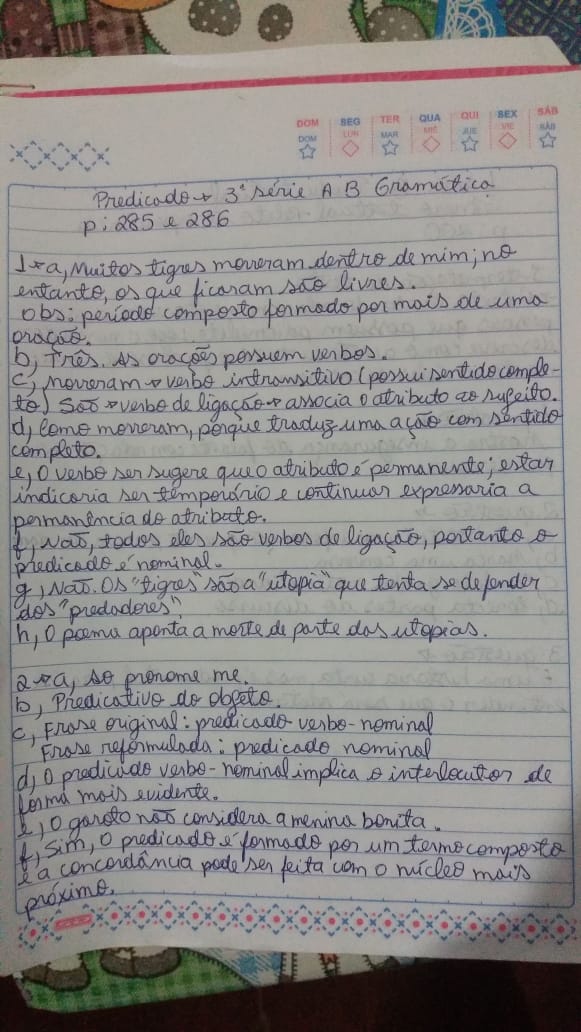 DOM SEG TER QUA QUI SEX SÁB
DOM LUN MAR MIÉ JUE VIE SÁB
Predicado → 3ª série A B Gramática
p: 285 e 286
1→a, Muitos tigres morreram dentro de mim; no
entanto, os que ficaram são livres.
Obs: período composto formado por mais de uma
oração.
b, Três. As orações possuem verbos.
c, morreram → verbo intransitivo (possui sentido comple-
to) São → verbo de ligação → associa o atributo ao sujeito.
d, Como morreram, porque traduz uma ação com sentido
completo.
e, O verbo ser sugere que o atributo é permanente; estar
indicaria ser temporário e continuar expressaria a
permanência do atributo.
f, Não, todos eles são verbos de ligação, portanto o
predicado é nominal.
g, Não. Os "tigres" são a "utopia" que tenta se defender
dos "predadores"
h, O poema aponta a morte de parte das utopias.
2→a, Ao pronome me.
b, Predicativo do objeto.
c, Frase original: predicado verbo-nominal
Frase reformulada: predicado nominal
d, O predicado verbo-nominal implica o interlocutor de
forma mais evidente.
e, O garoto não considera a menina bonita.
f, Sim, O predicado é formado por um termo composto
e a concordância pode ser feita com o núcleo mais
próximo.